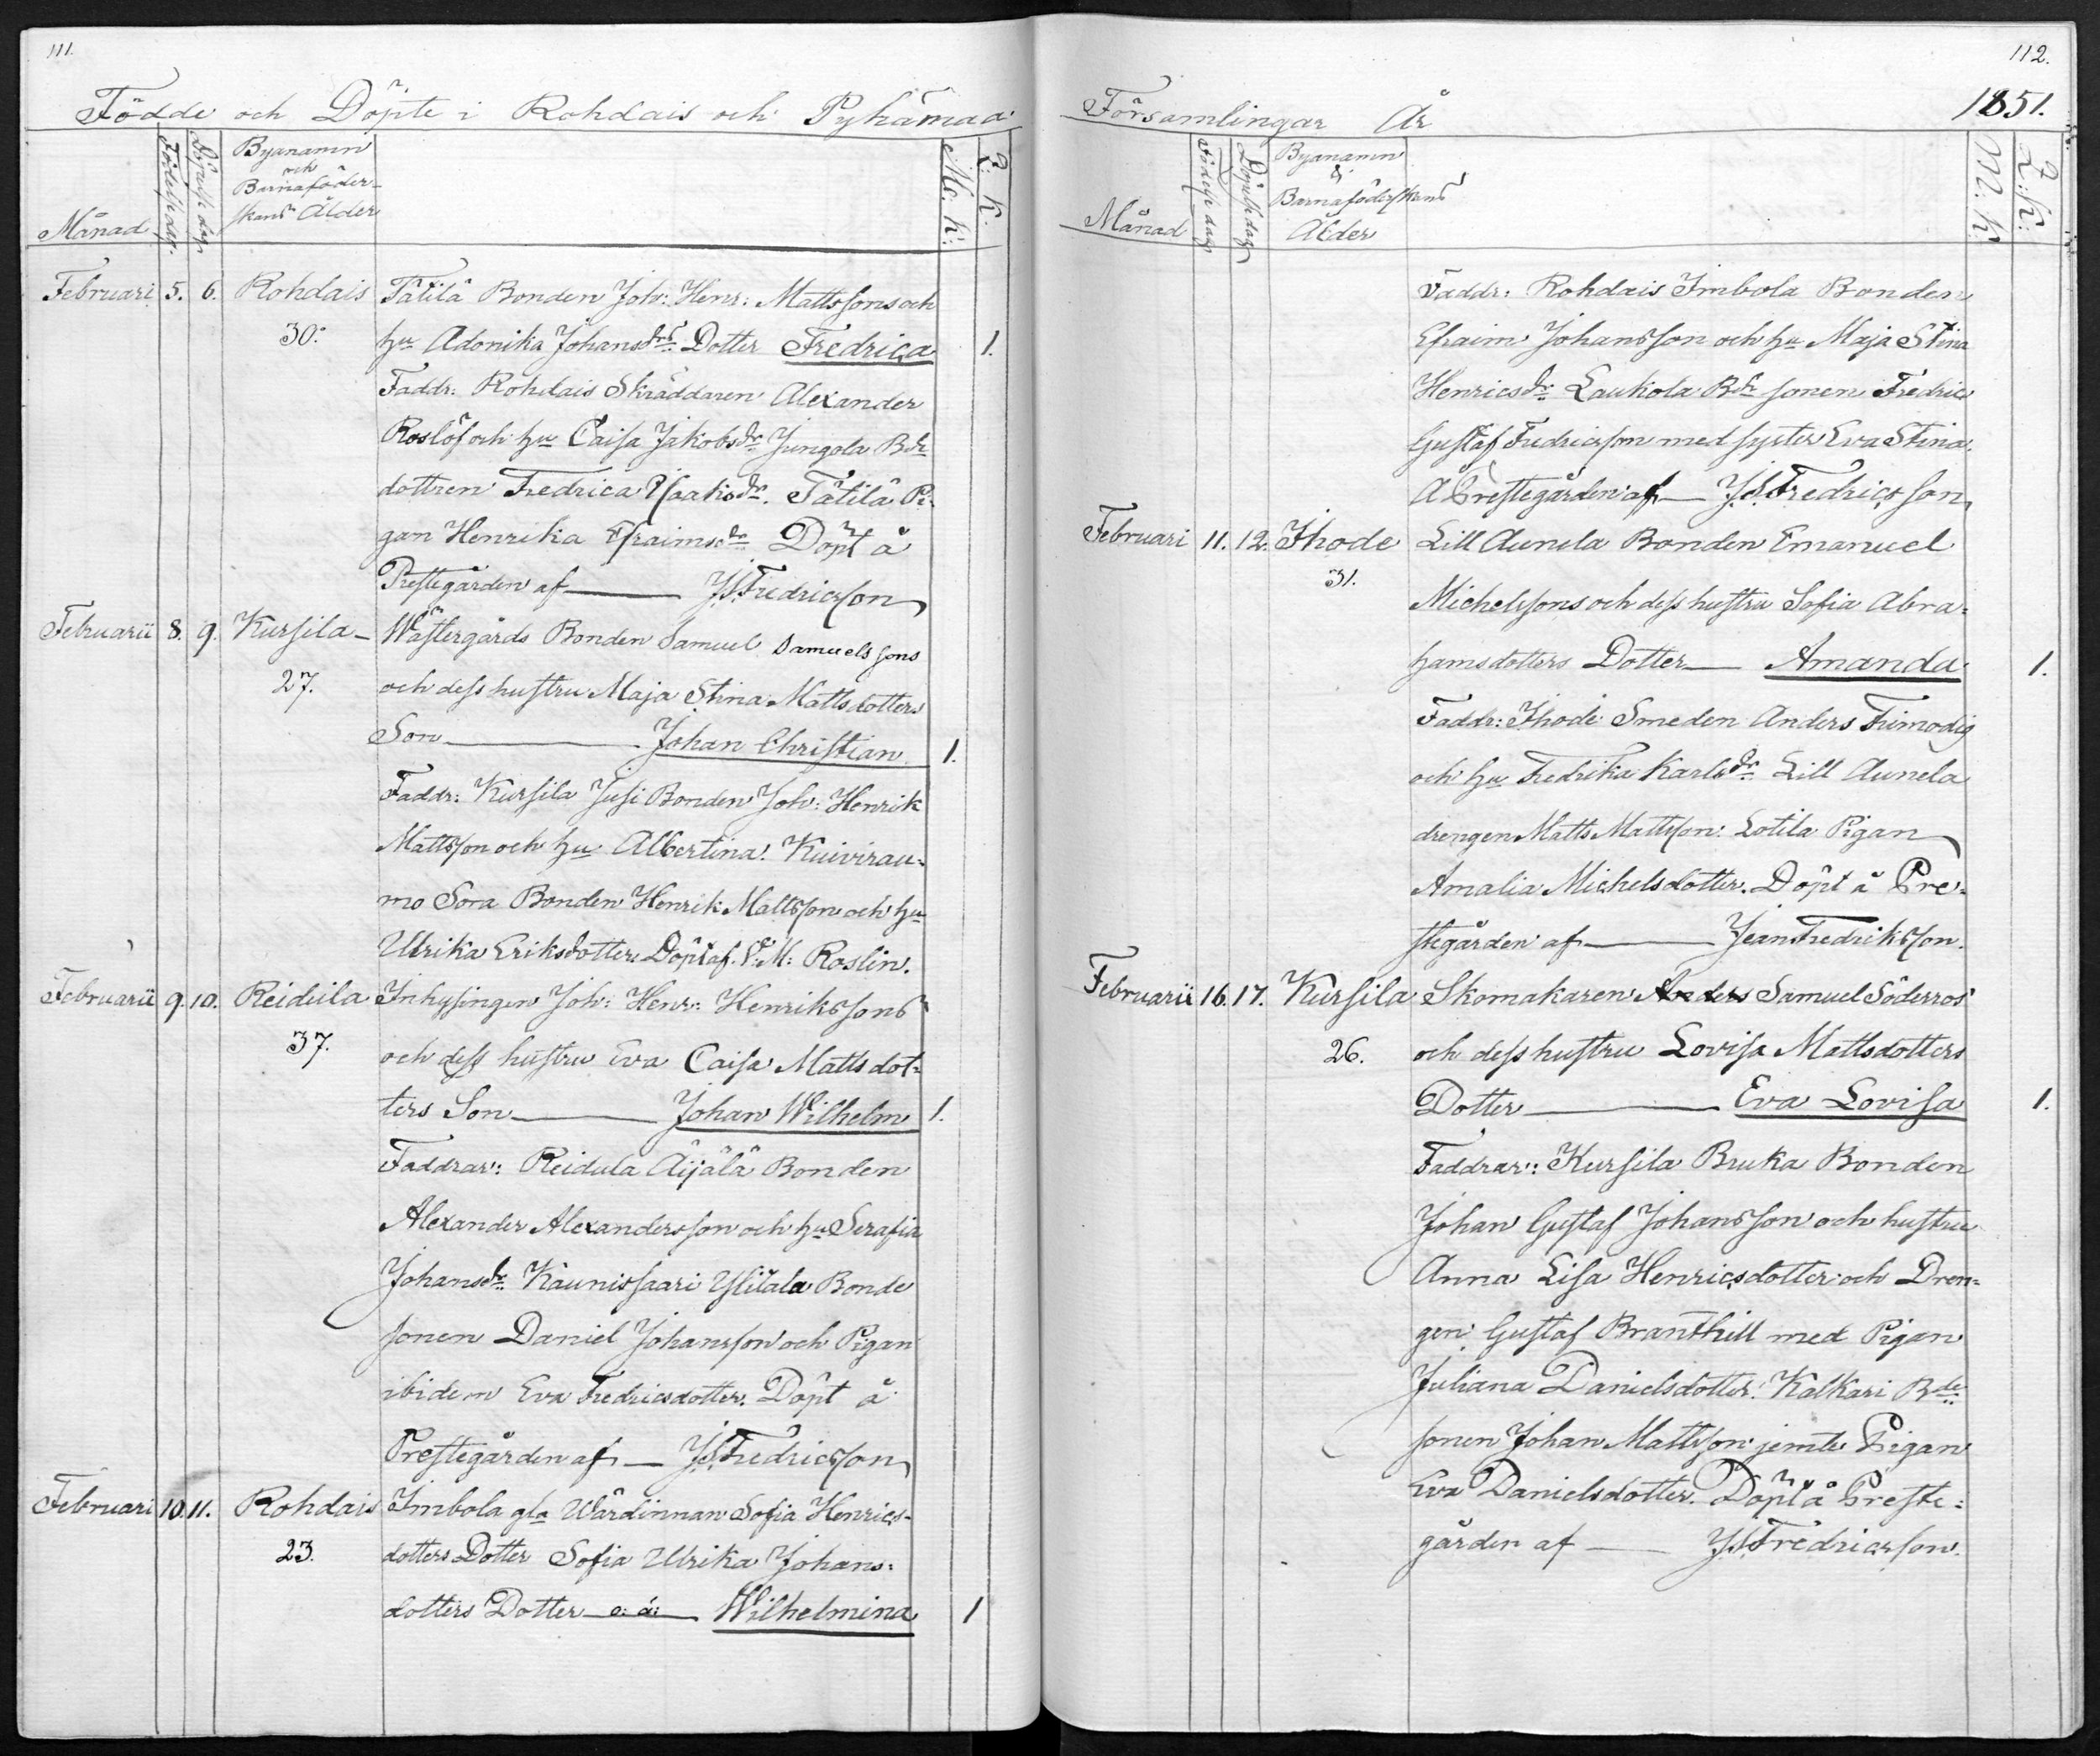 111.
Födde och Döpte i Rohdais och Pyhämaa
Månad
Födelse dag.
Döpelse dag
Byanamn
och
Barnaföder-
skans Ålder
M: K:
Q: K.
Februari 5. 6. Rohdais Tätilä Bonden Joh: Henr: Mattssons och
30. hu Adonika Johansdrs Dotter Fredrica 1.
Faddr: Rohdais Skräddaren Alexander
Roslöf och hu Caisa Jakobsdr Jungola Bde
dottren Fredrica Isaksdr. Tätilä Pi-
gan Henrika Efraimsdr Döpt å
Prestegården af — J.S. Fredricsson
Februarii 8. 9. Kursila - Wästergårds Bonden Samuel Samuelssons
27. och dess hustru Maja Stina Mattsdotters
Son — Johan Christian 1.
Faddr: Kursila Jusi Bonden Joh: Henrik
Mattsson och hu Albertina. Kuivirau-
mo Sora Bonden Henrik Mattsson och hu
Ulrika Eriksdotter. Döpt af V: M: Roslin.
Februarii 9. 10. Reidula Inhysingen Joh: Henr: Henrikssons
37. och dess hustru Eva Caisa Mattsdot-
ters Son — Johan Wilhelm 1.
Faddrar: Reidula Äijälä Bonden
Alexander Alexandersson och hu Serafia
Johansdr. Kaunissaari Ylitalo Bonde
sonen Daniel Johansson och Pigan
ibidem Eva Fredricsdotter. Döpt å
Prestegården af — J.S. Fredricsson
Februari 10. 11. Rohdais Imbola gla Wärdinnan Sofia Henrics-
23. dotters Dotter Sofia Ulrika Johans-
dotters Dotter — o: ä: — Wilhelmina 1
112.
Församlingar År 1851.
Månad
Födelse dag
Döpelse dag
Byanamn
&
Barnaföderskans
Ålder
M. K:
Q: K:
Faddr: Rohdais Imbola Bonden
Efraim Johansson och hu Maja Stina
Henricsdr Laukola Bde sonen Fredric
Gustaf Fredricsson med syster Eva Stina.
Å Prestegården af — J.S. Fredricsson
Februari 11. 12. Ihode Lill Aunela Bonden Emanuel
31. Michelssons och dess hustru Sofia Abra-
hamsdotters Dotter — Amanda 1.
Faddr: Ihode Smeden Anders Frimodig
och hu Fredrika Karlsdr Lill Aunela
drengen Matts Mattsson: Lotila Pigan
Amalia Michelsdotter. Döpt å Pre-
stegården af — Jean Fredriksson.
Februarii 16. 17. Kursila Skomakaren Anders Samuel Söderros
26. och dess hustru Lovisa Mattsdotters
Dotter — Eva Lovisa 1.
Faddrar: Kursila Bruka Bonden
Johan Gustaf Johansson och hustru
Anna Lisa Henricsdotter och Dren-
gen Gustaf Branthill med Pigan
Juliana Danielsdotter. Kalkari Bde
sonen Johan Mattsson jemte Pigan
Eva Danielsdotter. Döpt å Preste-
gården af — J.S. Fredricsson.